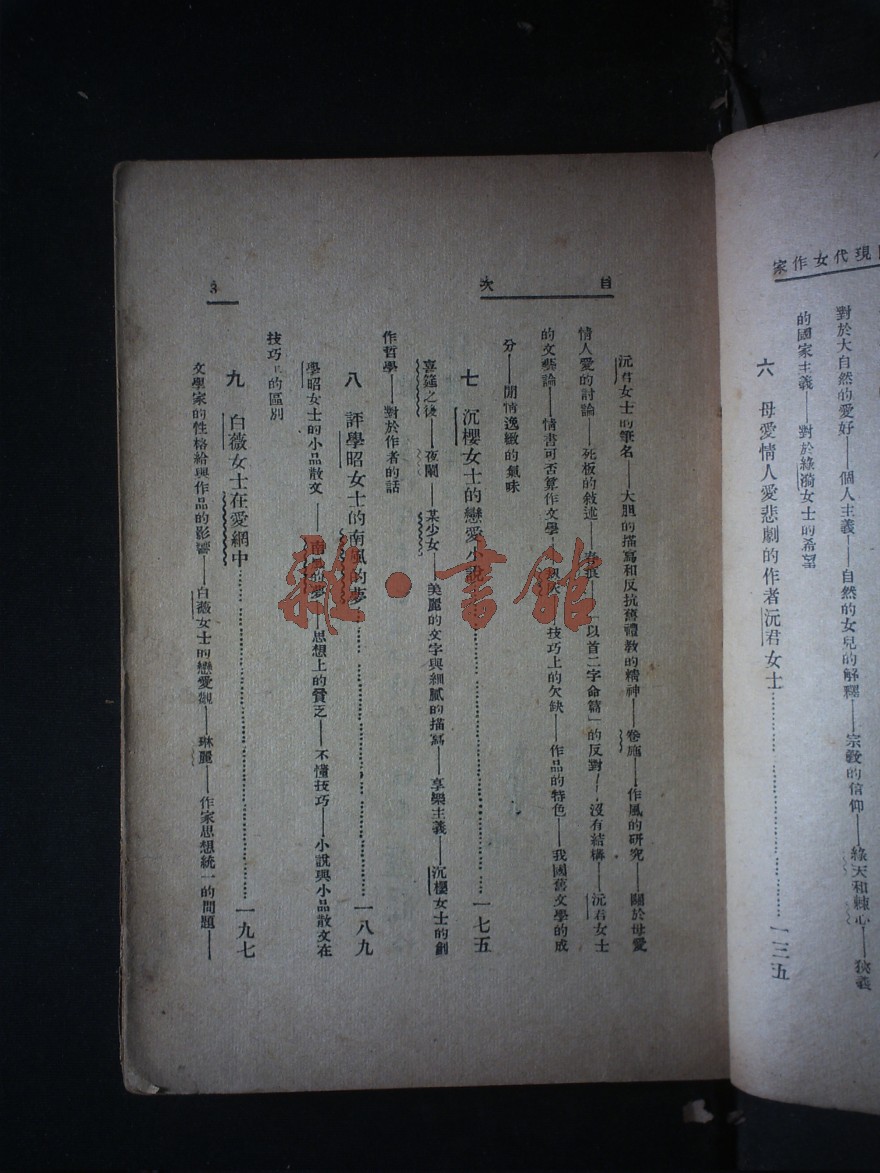 現代女作家
對於大自然的愛好——個人主義——自然的女兒的解釋——宗教的信仰——綠天和棘心——狹義
的國家主義——對於綠漪女士的希望
六 母愛情人愛悲劇的作者沅君女士…………一三五
目次
沅君女士的筆名——大胆的描寫和反抗舊禮教的精神——卷葹——作風的研究——關於母愛
情人愛的討論——死板的敘述——春痕——「以首二字命篇」的反對——沒有結構——沅君女士
的文藝論——情書可否算作文學——技巧上的欠缺——作品的特色——我國舊文學的成
分——閒情逸緻的氣味
七 沉櫻女士的戀愛小說…………一七五
喜筵之後——夜闌——某少女——美麗的文字與細膩的描寫——享樂主義——沉櫻女士的創
作哲學——對於作者的話
八 評學昭女士的南風的夢…………一八九
學昭女士的小品散文——南風的夢——思想上的貧乏——不懂技巧——小說與小品散文在
技巧上的區別
九 白薇女士在愛網中…………一九七
文學家的性格給與作品的影響——白薇女士的戀愛觀——琳麗——作家思想統一的問題——
3
雜·書館